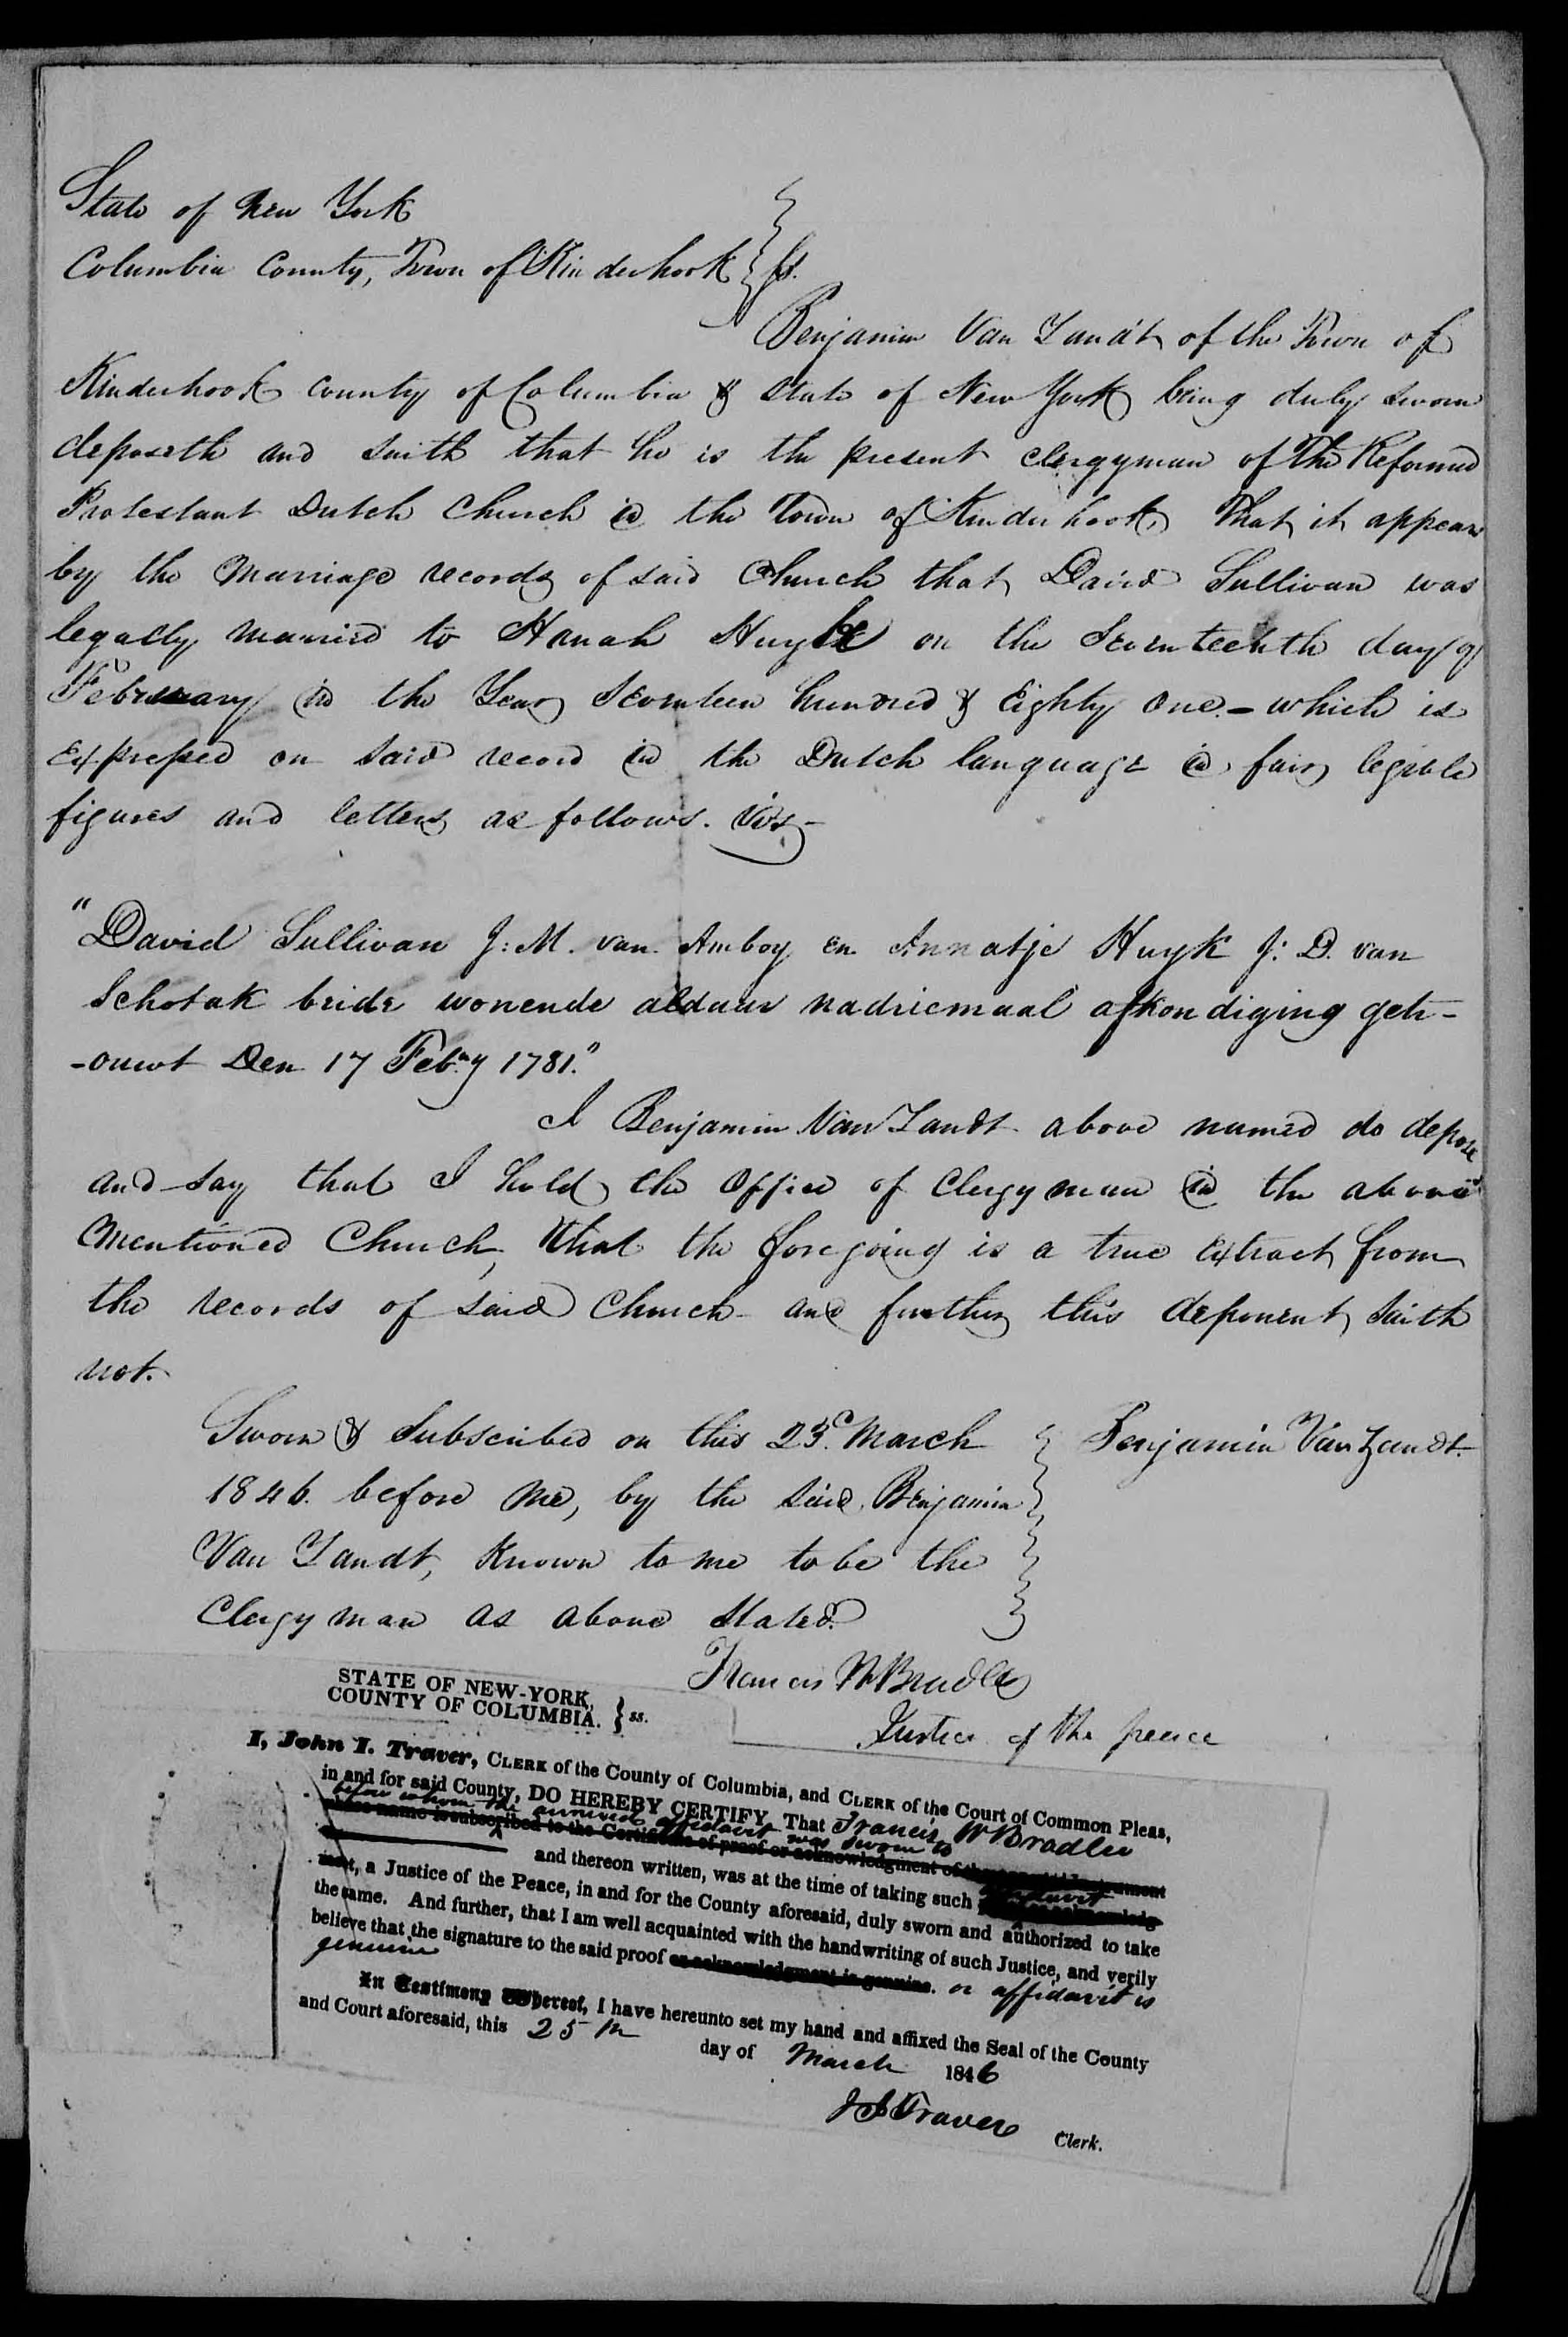 State of New York
Columbia County, Town of Kinderhook } ss.
Benjamin Van Zandt of the Town of
Kinderhook county of Columbia & State of New York being duly sworn
deposeth and saith that he is the present clergyman of The Reformed
Protestant Dutch Church in the Town of Kinderhook, That it appears
by the Marriage records of said Church that David Sullivan was
legally married to Hanah Huyk on the Seventeenth day of
February in the Year Seventeen hundred & Eighty One. - which is
Expressed on said record in the Dutch language in fair legible
figures and letters as follows. Viz -
"David Sullivan J: M. van Amboy en Annatje Huyk J: D. van
Schotak beide wonende aldaar nadriemaal afkondiging getr-
-ouwt Den 17 Feby. 1781."
I Benjamin Van Zandt above named do depose
and say that I hold the Office of Clergyman in the above
Mentioned Church, that the foregoing is a true Extract from
the records of said Church and further this deponent saith
not.
Sworn & Subscribed on this 23d. March } Benjamin Van Zandt.
1846. before me, by the said Benjamin
Van Zandt, Known to me to be the
Clergyman as above Stated.
Francis W Bradley
Justice of the peace
STATE OF NEW-YORK,
COUNTY OF COLUMBIA. } ss.
I, John I. Traver, CLERK of the County of Columbia, and CLERK of the Court of Common Pleas,
in and for said County, DO HEREBY CERTIFY, That Francis W Bradley
before whom the annexed affidavit was sworn to
whose name is subscribed to the Certificate of proof or acknowledgment of the
and thereon written, was at the time of taking such affidavit
ment, a Justice of the Peace, in and for the County aforesaid, duly sworn and authorized to take
the same. And further, that I am well acquainted with the handwriting of such Justice, and verily
believe that the signature to the said proof or acknowledgment is genuine. or affidavit is
genuine
In Testimony Whereof, I have hereunto set my hand and affixed the Seal of the County
and Court aforesaid, this 25th day of March 1846
J I Traver Clerk.